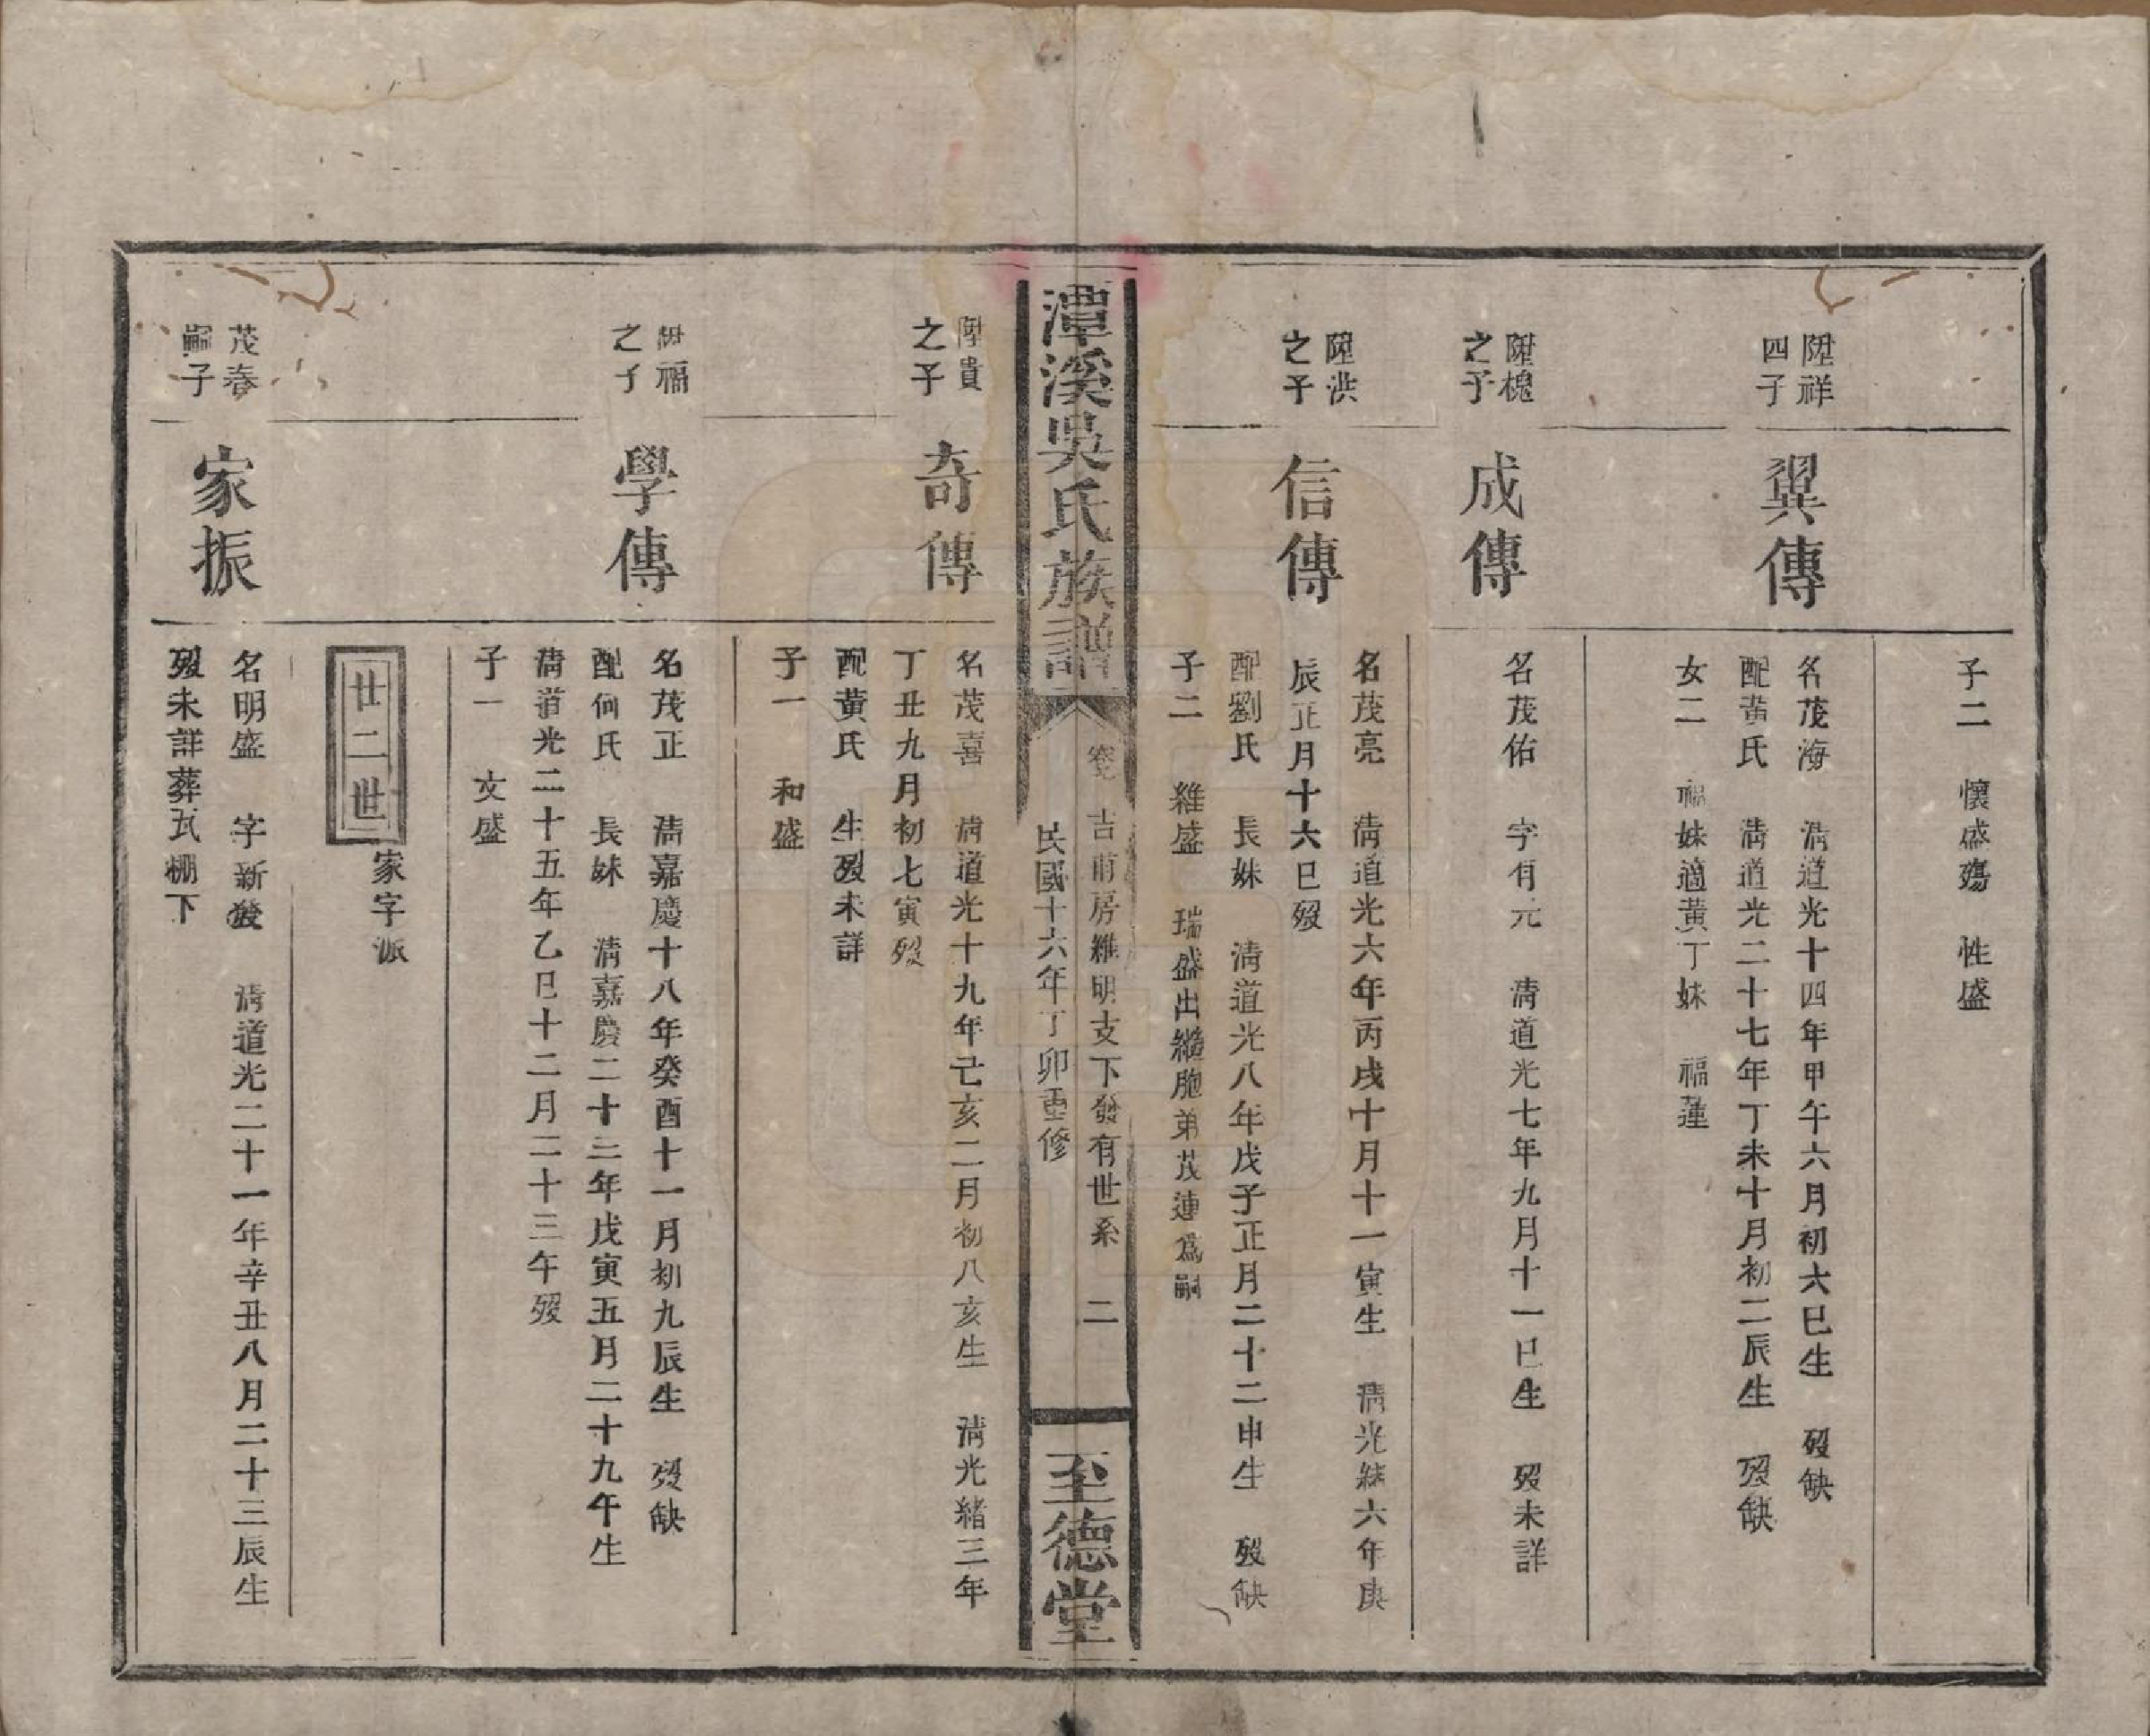 子二　懷盛殤　性盛
陞祥
四子
翼傳
名茂海　清道光十四年甲午六月初六巳生　歿缺
配黃氏　清道光二十七年丁未十月初二辰生　歿缺
女二　福妹適黃丁妹　福蓮
陞槐
之子
成傳
名茂佑　字有元　清道光七年九月十一巳生　歿未詳
陞洪
之子
信傳
名茂亮　清道光六年丙戌十月十一寅生　清光緒六年庚
辰正月十六巳歿
配劉氏　長妹　清道光八年戊子正月二十二申生　歿缺
子二　維盛　瑞盛出繼胞弟茂連為嗣
潭溪吳氏族譜
吉甫房維明支下發有世系　二
民國十六年丁卯重修
至德堂
陞貴
之子
奇傳
名茂喜　清道光十九年己亥二月初八亥生　清光緒三年
丁丑九月初七寅歿
配黃氏　生歿未詳
子一　和盛
陞福
之子
學傳
名茂正　清嘉慶十八年癸酉十一月初九辰生　歿缺
配何氏　長妹　清嘉慶二十三年戊寅五月二十九午生
清道光二十五年乙巳十二月二十三午歿
子一　文盛
廿二世
家字派
茂春
嗣子
家振
名明盛　字新發　清道光二十一年辛丑八月二十三辰生
歿未詳葬瓦棚下